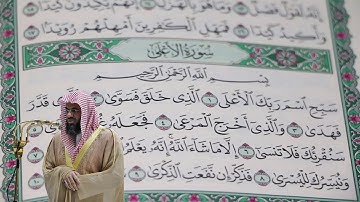 إِنَّهُۥ لَقَوْلٌ فَصْلٌ ١٣ وَمَا هُوَ بِٱلْهَزْلِ ١٤ إِنَّهُمْ يَكِيدُونَ كَيْدًا ١٥
وَأَكِيدُ كَيْدًا ١٦ فَمَهِّلِ ٱلْكَٰفِرِينَ أَمْهِلْهُمْ رُوَيْدًۢا ١٧
سُورَةُ الأَعْلَىٰ
بِسْمِ ٱللَّهِ ٱلرَّحْمَٰنِ ٱلرَّحِيمِ
سَبِّحِ ٱسْمَ رَبِّكَ ٱلْأَعْلَى ١ ٱلَّذِى خَلَقَ فَسَوَّىٰ ٢ قَدَّرَ
فَهَدَىٰ ٣ وَٱلَّذِىٓ أَخْرَجَ ٱلْمَرْعَىٰ ٤ فَجَعَلَهُۥ
سَنُقْرِئُكَ فَلَا تَنسَىٰٓ ٦ إِلَّا مَا شَآءَ ٱللَّهُ إِنَّهُۥ يَعْلَمُ ٧
وَنُيَسِّرُكَ لِلْيُسْرَىٰ ٨ فَذَكِّرْ إِن نَّفَعَتِ ٱلذِّكْرَىٰ ٩